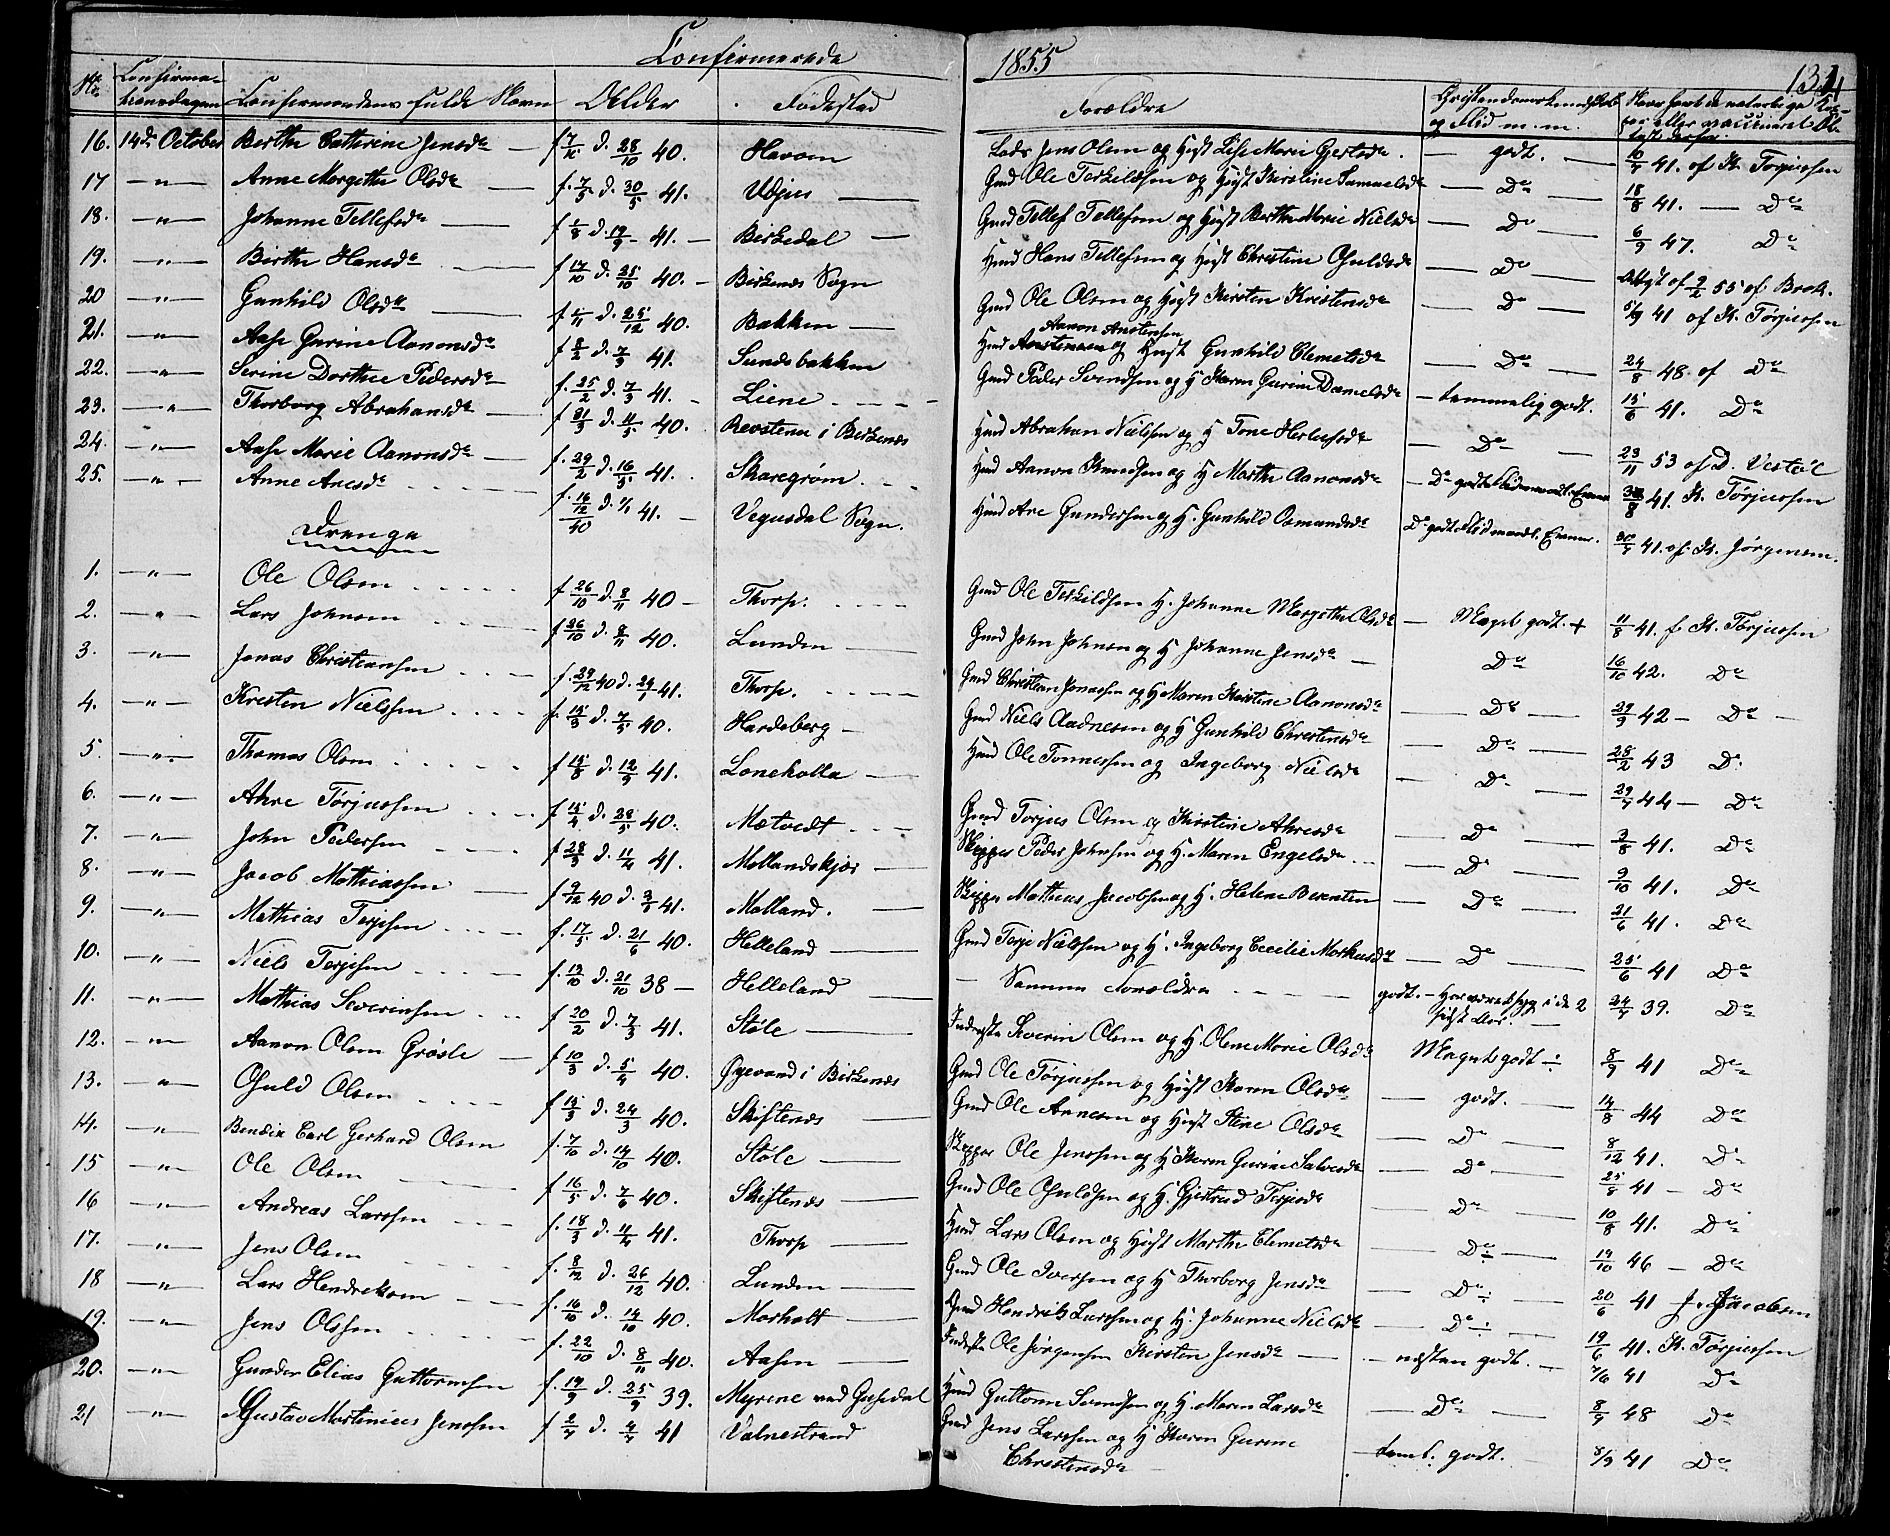 Confirmerede 1855 134
No Confirmationsdagen Confirmandens fulde Navn Alder Fødested Forældre Christendomskundskab og Flid m. m.
16. 14de October Berthe Cathrine Jensdr f 7/10 d. 28/10 40. Havom Lods Jens Olsen og Hust Lise Marie Gjertsdr. godt. 10/7 41. af K. Torjussen
17 —"— Anne Margethe Olsdr f. 7/5 d. 30/5 41. Gmd Ole Terkelsen og Hust Kirstine Samuelsdr Do 18/8 41. Do
18. —"— Johanne Tellefsdr f 1/8 d. 19/9 41. Birkedal Gmd Tellef Tellefsen og Hust Berthe Marie Nielsdr Do 6/9 47. Do
19. —"— Birthe Hansdr f 17/10 d. 25/10 40. Birkenæs Sogn Hmd Hans Tellefsen og Hust Christine Osuldsdr Do Attest af 9/2 55 af Brok.
20 —"— Gunhild Olsdr d. 25/12 40. Bakken Gmd Ole Olsen og Hust Kirsten Kristensdr Do 5/9 41 af K. Torjussen
21. —"— Aase Gurine Aanonsdr f 8/2 d. 7/3 41. Sundebakken Hmd Aanon Anstensen og Hust Gunhild Clemetsdr Do 24/8 48. af Do
22. —"— Serine Dorthee Pedersdr f. 25/2 d. 7/3 41. Liene Gmd Peder Svendsen og H Karen Gurine Danielsdr temmelig godt. 15/6 41. Do
23. —"— Thorborg Abrahamsdr f 31/3 d. 11/5 40. i Birkenæs Hmd Abraham Nielsen og H Tone Herlofsdr Do 23/11 53 af D. Vestøl
24. —"— Aase Marie Aanonsdr f. 29/2 d. 16/5 41. Skaregrøm Hmd Aanon Knudsen og H Marthe Aanonsdr Do godt 41. K. Torjussen
25. —"— Anne Aresdr f. 16/12 40 d. 1/1 41. Vegusdal Sogn. Hmd Are Gundersen og H. Gunhild Osmundsdr Do godt 30/7 41. af K. Jørgensen.
Drenge
1. —"— Ole Olsen f 26/10 d. 8/11 40 Thorp. Gmd Ole Terkildsen H. Johanne Margethe Olsdr Meget godt. + 11/8 41. f K. Torjussen
2. —"— Lars Johnsen f 26/10 d. 8/11 40. Lunden Gmd John Johnsen og H Johanne Jensdr Do 16/10 42. Do
3. —"— Jonas Christiansen f. 29/12 40 d. 24/1 41. Thorp. Gmd Christian Jonassen og H Maren Kirstine Aanonsdr Do 29/9 42 Do
4. —"— Kristen Nielsen f. 15/3 d. 7/5 40. Hardeberg Gmd Niels Aadnesen og H Gunhild Christensdr Do 28/2 43 Do
5. —"— Thomas Olsen f 15/8 d. 12/9 41. Loneholta Hmd Ole Tonnessen og Ingeborg Nielsdr Do 29/7 44 Do
6. —"— Ahre Torjussen f 15/4 d. 28/5 40. Mætvedt Gmd Torjus Olsen og Kirstine Ahresdr Do 3/8 41. Do
7. —"— John Pedersen f 28/3 d. 11/4 41. Mollandskjær Skipper Peder Johnsen og H. Maren Engelsdr Do 9/10 41. Do
8. —"— Jacob Mathiassen f 9/12 40 d. 3/1 41. Molland. Skipper Mathias Jacobsen og H. Helene Berentsen Do 21/6 41. Do
9. —"— Mathias Terjesen f. 17/5 d. 21/6 40. Helleland Gmd Terje Nielsen og H. Ingeborg Cecilie Markusdr Do 25/6 41 Do
10. —"— Niels Terjesen f. 13/10 d. 21/10 38 Helleland Samme Forældre godt. — Har været syg i de 2 sidst Aar. 24/7 39. Do
11. —"— Mathias Severinsen f 20/2 d. 7/3 41. Støle Inderste Severin Olsen og H. Olene Marie Olsdr Meget godt ÷ 8/7 41 Do
12. —"— Aanon Olsen Grøsle f 10/3 d. 5/4 40. Øgevand i Birkenæs Gmd Ole Torjussen og Hust Karen Olsdr godt. 14/8 44 Do
13. —"— Osuld Olsen f 13/3 d. 24/3 40. Skiftenæs Gmd Ole Annesen og Hust Stine Olsdr Do 8/12 41. Do
14. —"— Bendix Carl Gerhard Olsen f. 7/10 d. 14/10 40. Støle Skipper Ole Jenssen og H Karen Gurine Salvesdr Do 25/8 41 Do
15 —"— Ole Olsen f 16/5 d. 7/6 40. Skiftenæs Gmd Ole Osuldsen og H. Gjertrud Terjesdr Do 10/8 41. Do
16 —"— Andreas Larssen f. 18/3 d. 11/4 41. Thorp Hmd Lars Olsen og Hust Marthe Clemetsdr Do ÷ 19/10 46 Do
17. —"— Jens Olsen f. 8/12 d. 26/12 40. Lunden Gmd Ole Iversen og H Thorborg Jensdr Do ÷ 20/6 41 J. Jacobsen
18 —"— Lars Hendriksen f. 16/10 d. 14/10 40. Morholt Gmd Hendrik Larssen og H. Johanne Nielsdr Do ÷ 19/6 41. K. Torjussen
19. —"— Jens Olssen f. 22/10 d. 8/11 40. Aasen Inderste Ole Jørgensen Kirsten Jensdr næsten godt. 7/6 41 Do
20. —"— Gunder Elias Guttormsen f. 19/9 d. 25/9 39. Myrene ved Gusedal Hmd Guttorm Svendsen og H. Maren Larsdr Do 8/7 48 Do
21 —"— Gustav Martinius Jenssen f 2/7 d. 4/7 41 Valnestrand Gmd Jens Larssen og H Karen Gurine Christensdr teml. godt. 8/9 41 Do